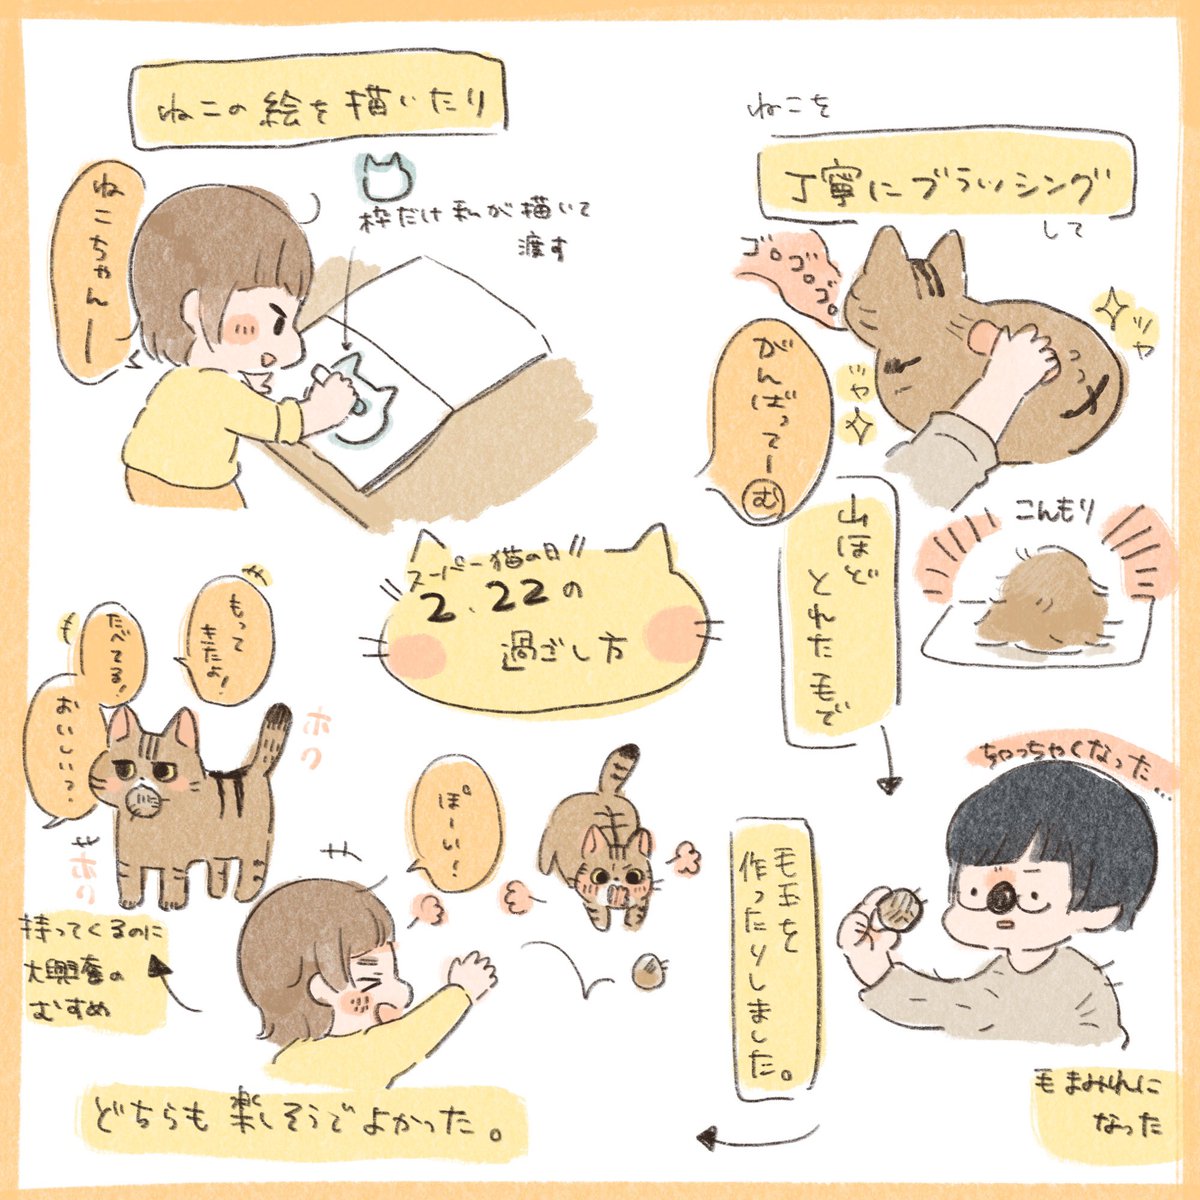 ねこの絵を描いたり
枠だけ私が描いて
渡す
ねこちゃんー
ねこを
丁寧にブラッシング
して
ゴロゴロゴロ
ツヤ
ツヤ
がんばってーむ
スーパー猫の日!!
2.22の
過ごし方
山ほど
とれた毛で
こんもり
ちゃっちゃくなった…
毛まみれに
なった
毛玉を
作ったりしました。
ぽーい!
もって
きたよ!
たべてる!
おいしいっ?
ホク
ホク
持ってくるのに
大興奮の
むすめ
どちらも楽しそうでよかった。